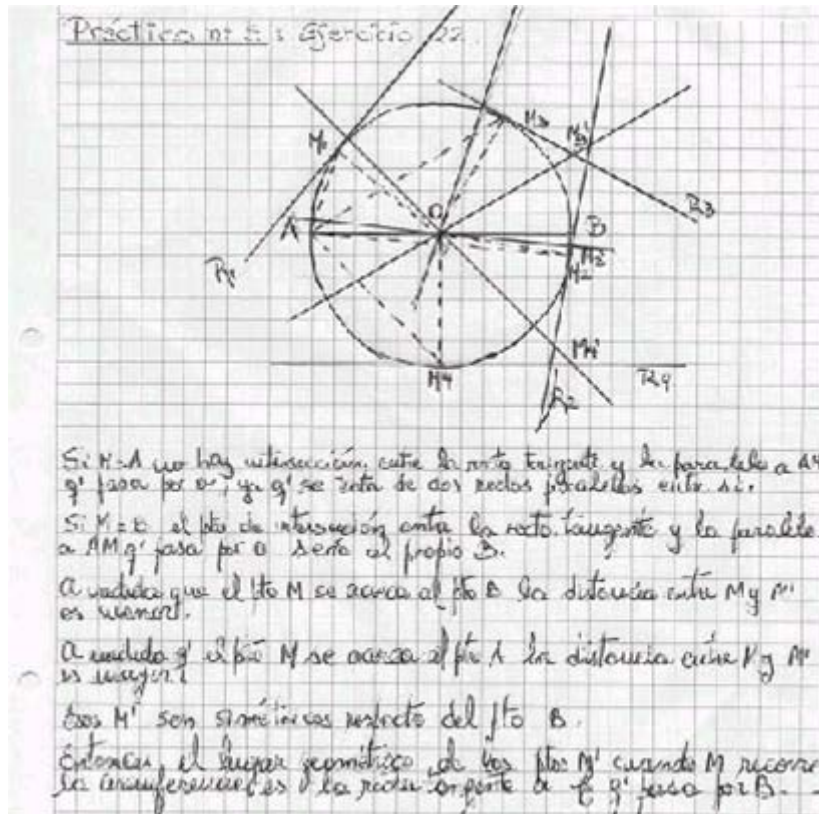 Práctica nº 5 : Ejercicio 22.
M1
M3
M3'
O
R3
A
B
M2'
M2
R1
M4'
M4
R4
R2
Si M=A no hay intersección entre la recta tangente y la paralela a AM
q' pasa por o, ya q' se trata de dos rectas paralelas entre sí.
Si M=B el pto de intersección entre la recta tangente y la paralela
a AM q' pasa por O sería el propio B.
A medida que el pto M se acerca al pto B la distancia entre M y M'
es menor.
A medida q' el pto M se acerca al pto A la distancia entre M y M'
es mayor.
M' son simétricos respecto del pto B.
Entonces, el lugar geométrico de los ptos M' cuando M recorre
la circunferencia es la recta tangente a q' pasa por B.